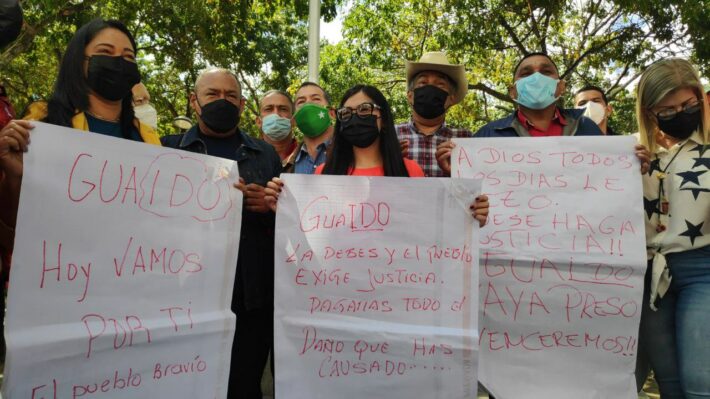 GUAIDO
Hoy VAMOS
POR TI
El pueblo BRAVIO
GUAIDO
LA DEBES y EL PUEBLO
EXIGE JUSTICIA.
PAGARAS TODO EL
DAÑO QUE HAS
CAUSADO......
A DIOS TODOS
LOS DIAS LE
PIDO.
QUE SE HAGA
JUSTICIA!!
GUAIDO
VAYA PRESO
VENCEREMOS!!